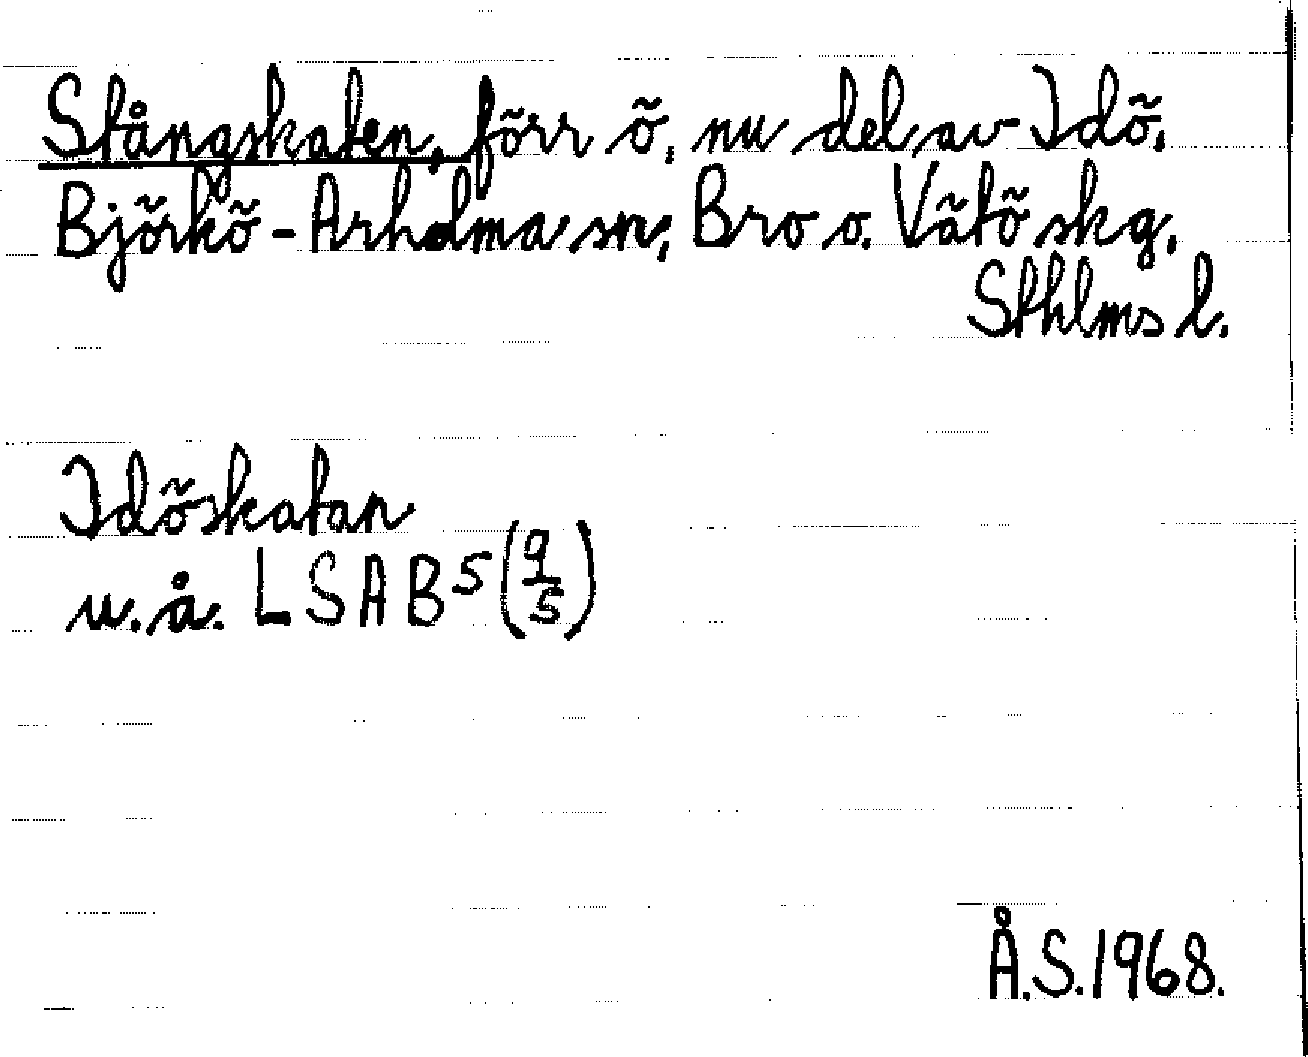 Stångskaten, förr ö, nu del av Idö.
Björkö-Arholma sn, Bro o. Vätö skg.
Sthlms l.
Idöskatan
u.å. LSA B5 (9/5)
Å.S. 1968.